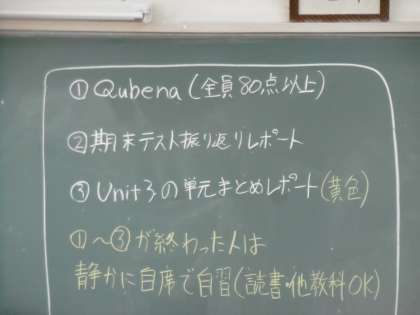 ①Qubena(全員80点以上)
②期末テスト振り返りレポート
③Unit3の単元まとめレポート(黄色)
①～③が終わった人は
静かに自席で自習(読書・他教科OK)